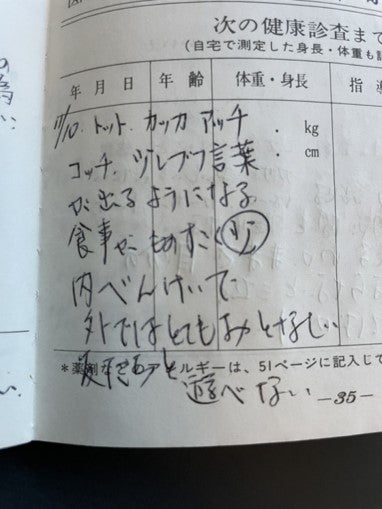 次の健康診査まで
(自宅で測定した身長・体重も記
年月日 年齢 体重・身長 指導
トット カッカ アッチ ・ kg
コッチ ・ cm
言葉
が出るようになる
食事がものすごく
内べんけいで
外ではとてもおとなしい
*薬剤 ルギーは、51ページに記入して
遊べない
—35—